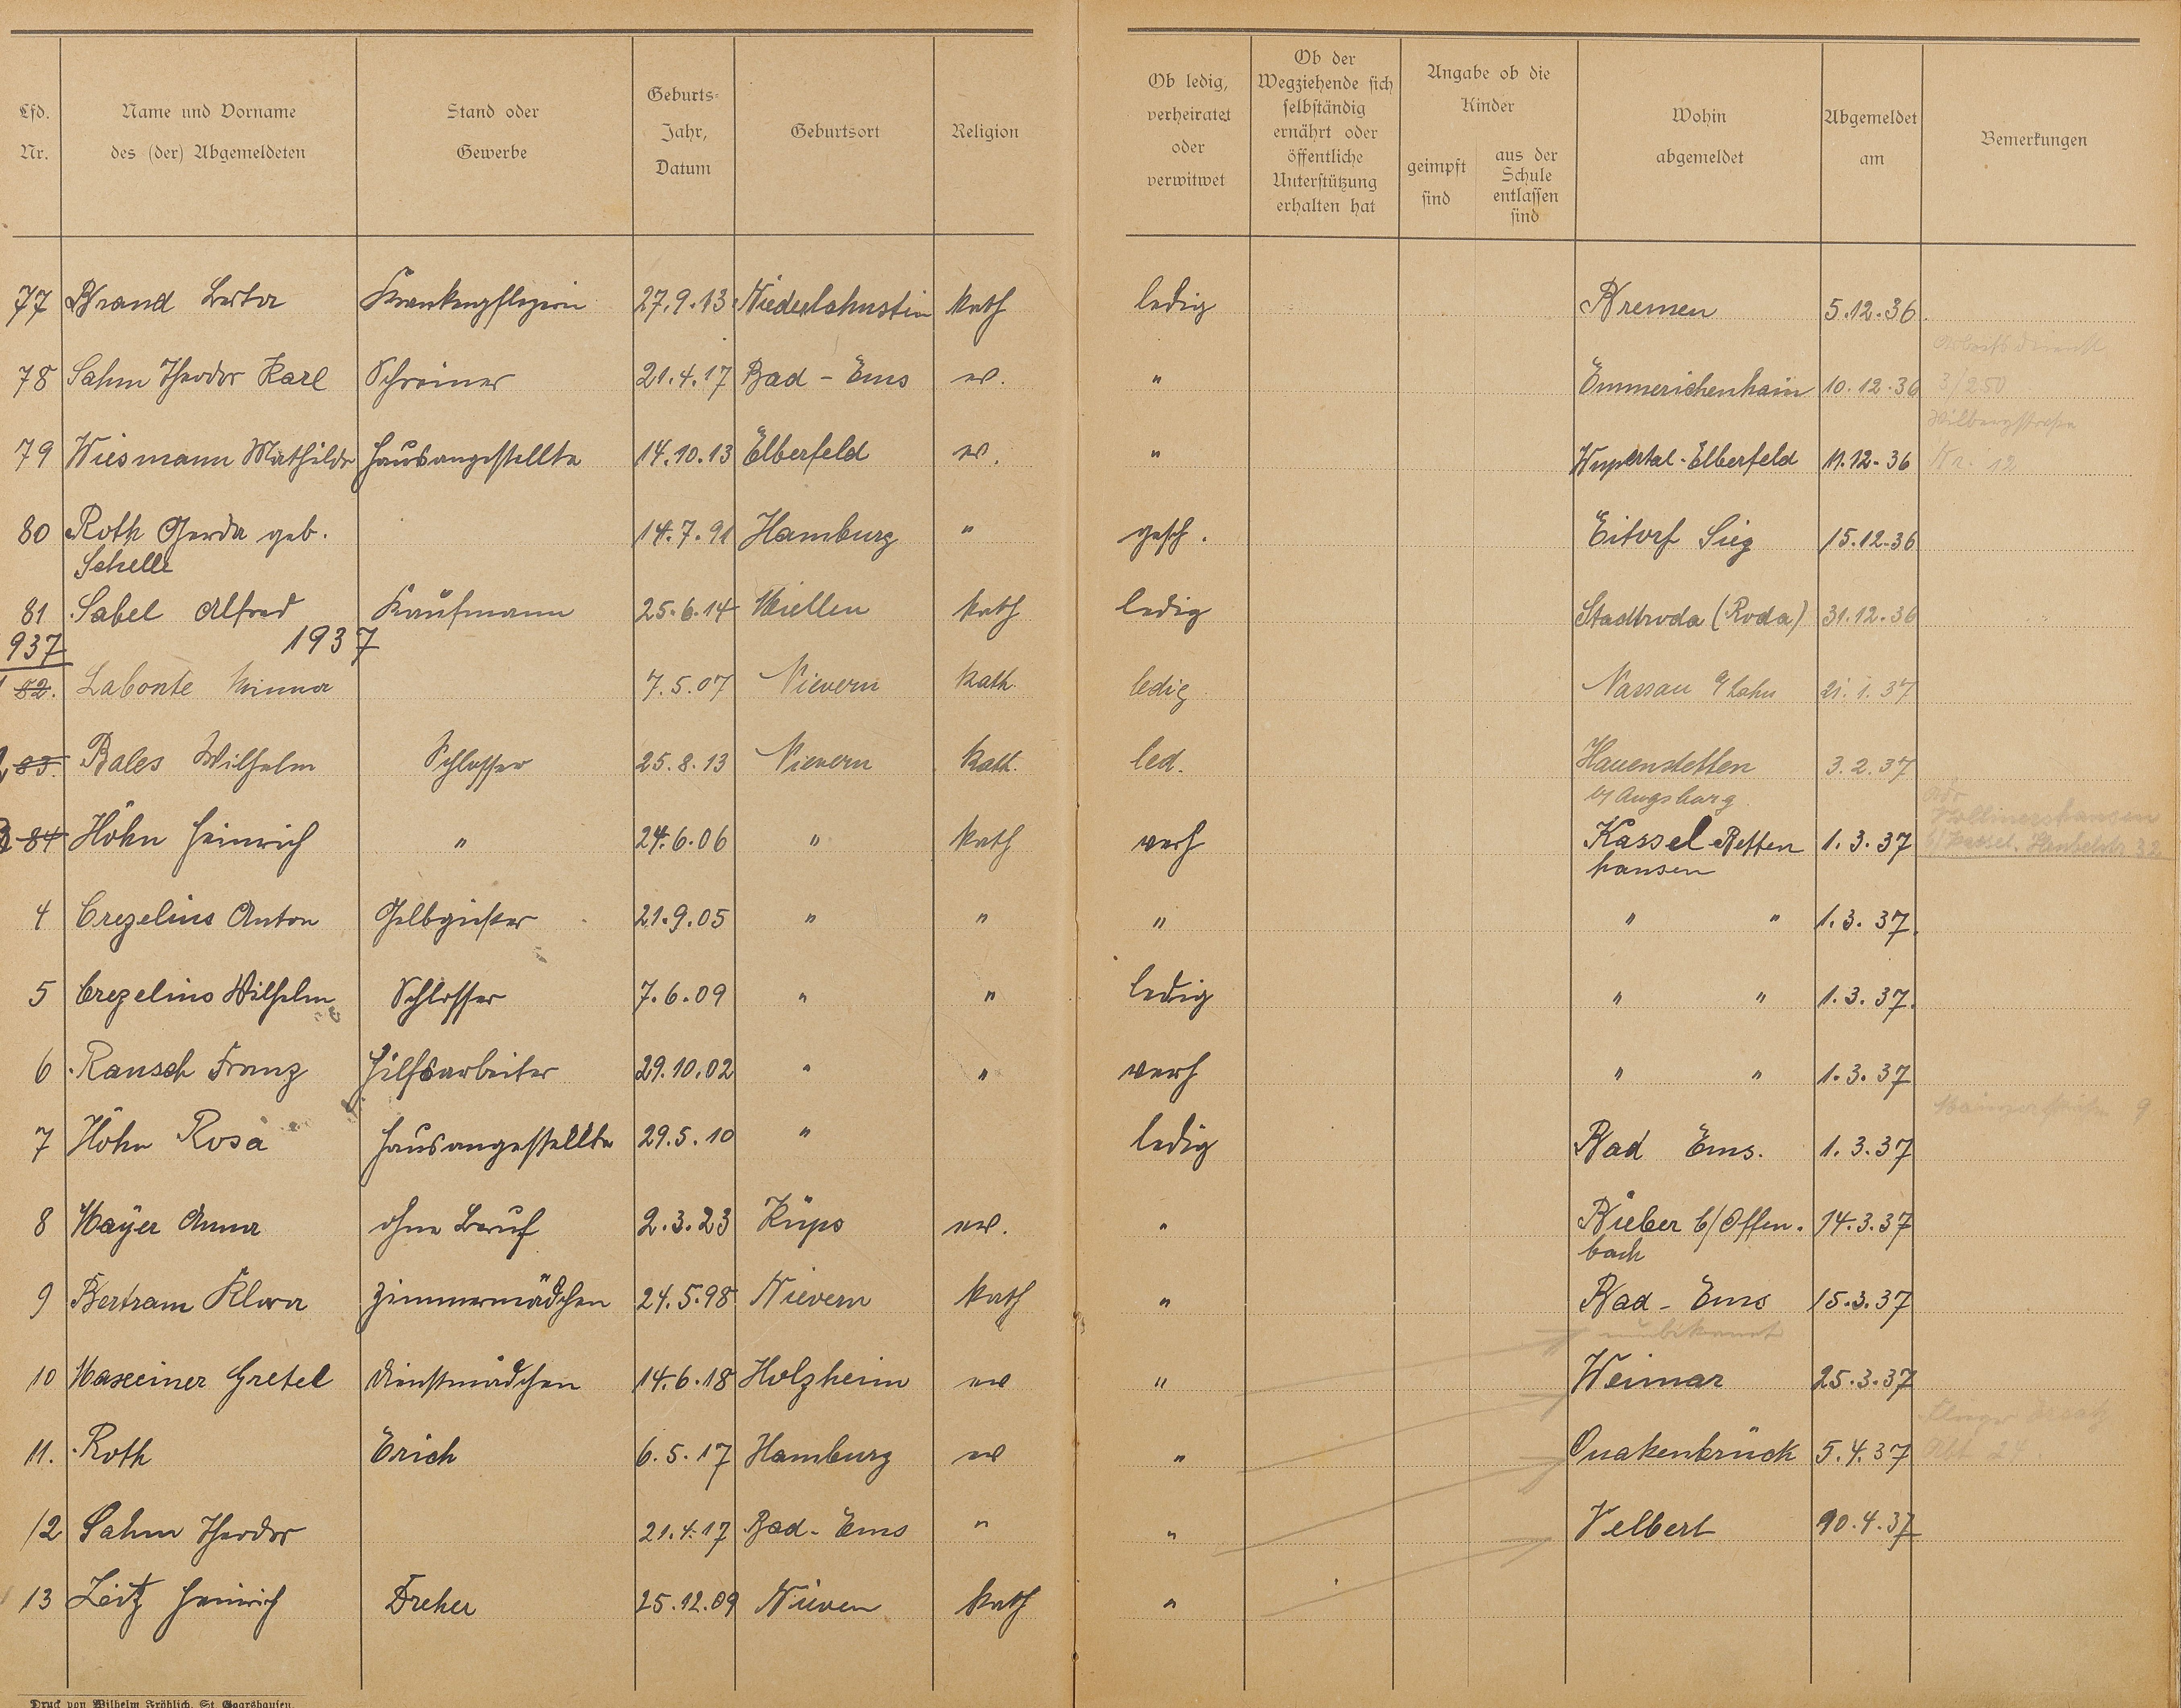 Lfd. Nr.
Name und Vorname des (der) Abgemeldeten
Stand oder Gewerbe
Geburts-Jahr, Datum
Geburtsort
Religion
Ob ledig, verheiratet oder verwitwet
Ob der Wegziehende sich selbständig ernährt oder öffentliche Unterstützung erhalten hat
Angabe ob die Kinder
geimpft sind
aus der Schule entlassen sind
Wohin abgemeldet
Abgemeldet am
Bemerkungen
77 Brand Berta Krankenpflegerin 27.9.13 Niederlahnstein kath ledig Bremen 5.12.36.
Arbeitsdienst
78 Sahm Theodor Karl Schreiner 21.4.17 Bad-Ems ev. " Emmerichenhain 10.12.36 3/250
79 Wiesmann Mathilde Hausangestellte 14.10.13 Elberfeld ev. " Wuppertal-Elberfeld 11.12.36 Nr. 12
80 Roth Gerda geb. 14.7.91 Hamburg " gesch. Eitorf Sieg 15.12.36
Schelle
81 Sabel Alfred Kaufmann 25.6.14 Miellen kath ledig Stadtroda (Roda) 31.12.36
937 1937
1 82. Labonte Minna 7.5.07 Nievern kath. ledig Nassau a/Lahn 21.1.37
2 83. Bales Wilhelm Schlosser 25.8.13 Nievern kath. led. Hauenstetten 3.2.37
b/ Augsburg
3 84 Höhn Heinrich " 24.6.06 " kath verh Kassel Betten 1.3.37 b/Kassel.
hausen
4 Crezelius Anton Gelbgießer 21.9.05 " " " " " 1.3.37.
5 Crezelius Wilhelm Schlosser 7.6.09 " " ledig " " 1.3.37.
6 Rausch Franz Hilfsarbeiter 29.10.02 " " verh " " 1.3.37
9
7 Höhn Rosa Hausangestellte 29.5.10 " ledig Bad Ems. 1.3.37
8 Mayer Anna ohne Beruf 2.3.23 Küps ev. " Bieber b/Offen. 14.3.37
bach
9 Bertram Klara Zimmermädchen 24.5.98 Nievern kath " Bad-Ems 15.3.37
unbekannt
10 Maxeiner Gretel Dienstmädchen 14.6.18 Holzheim ev " Weimar 25.3.37
Flieger Ersatz
11. Roth Erich 6.5.17 Hamburg ev " Quakenbrück 5.4.37 Abt.
12 Sahm Theodor 21.4.17 Bad-Ems " " Velbert 4.37
13 Leitz Heinrich Dreher 25.12.09 Nieven kath "
Druck von Wilhelm Fröhlich, St. Goarshausen.